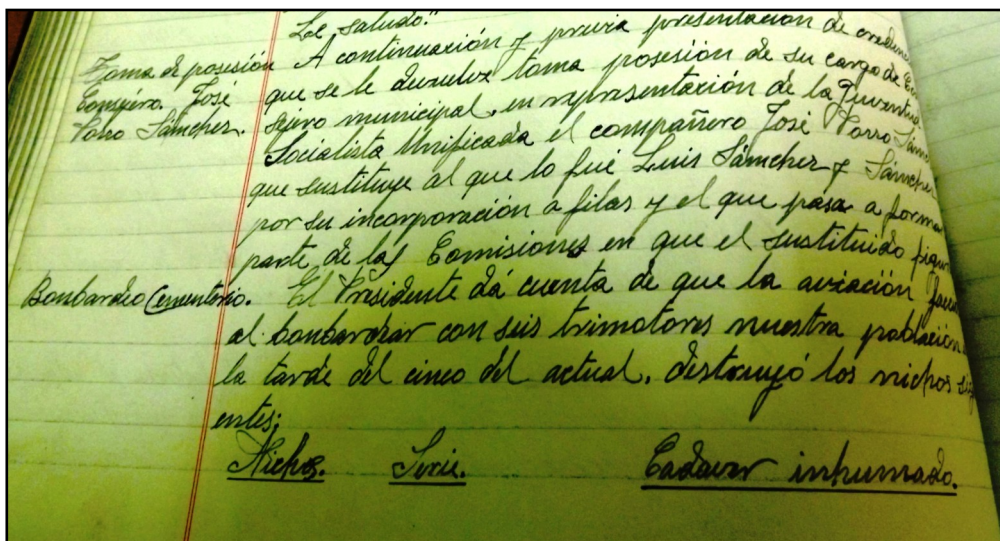 Le saludo."
Toma de posesión
Consejero José
Parro Sámcher.
A continuación y previa presentación de creden
que se le devuelve toma posesión de su cargo de Con
sejero municipal, en representación de la Juventud
Socialista Unificada el compañero José Parro Sámc
que sustituye al que lo fué Luis Sámcher y Sámcher
por su incorporación a filas y el que pasa a forma
parte de las Comisiones en que el sustituido figu
Bonbardeo Cementerio.
El Presidente dá cuenta de que la aviación facc
al bonbardear con seis trimotores nuestra población
la tarde del cinco del actual, destruyó los nichos sig
entes;
Nichos. Serie. Cadaver inhumado.